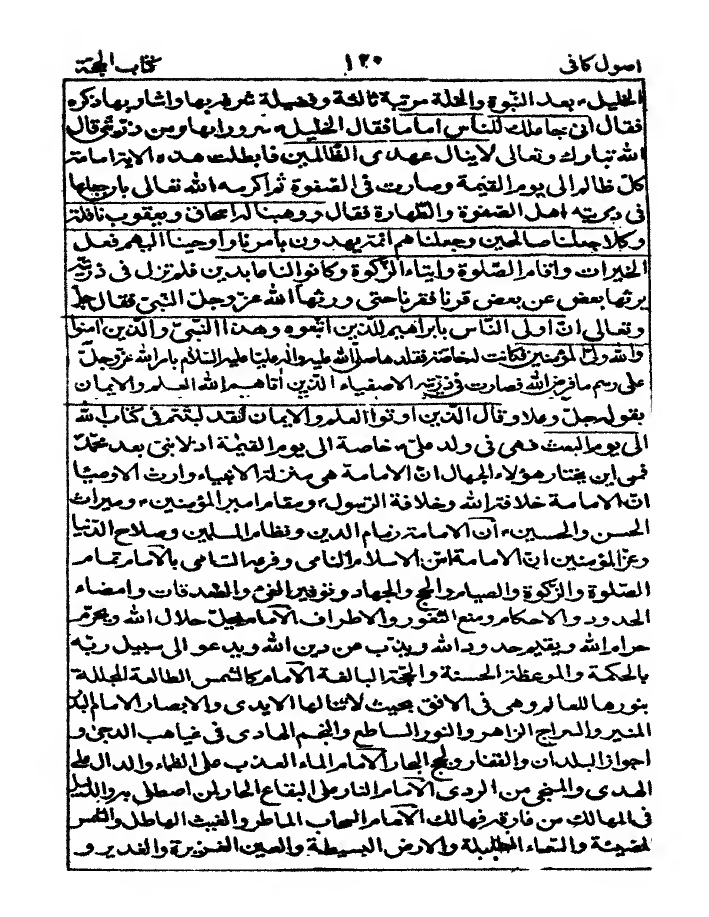 اصول كافى ١٢٠ كتاب الحجة
الخليل ع بعد النبوة والخلة مرتبة ثالثة وفضيلة شرفه بها واشاد بها ذكره
فقال انى جاعلك للناس اماما فقال الخليل ع سرورا بها ومن ذريتى قال
الله تبارك وتعالى لا ينال عهدى الظالمين فابطلت هذه الاية امامة
كل ظالم الى يوم القيمة وصارت فى الصفوة ثم اكرمه الله تعالى بان جعلها
فى ذريته اهل الصفوة والطهارة فقال ووهبنا له اسحاق ويعقوب نافلة
وكلا جعلنا صالحين وجعلناهم ائمة يهدون بامرنا واوحينا اليهم فعل
الخيرات واقام الصلوة وايتاء الزكوة وكانوا لنا عابدين فلم تزل فى ذريته
يرثها بعض عن بعض قرنا فقرنا حتى ورثها الله عز وجل النبى فقال جل
وتعالى ان اولى الناس بابراهيم للذين اتبعوه وهذا النبى والذين امنوا
والله ولى المؤمنين فكانت له خاصة فقلدها صلى الله عليه واله عليا عليه السلام بامر الله عز وجل
على رسم ما فرض الله فصارت فى ذريته الاصفياء الذين أتاهم الله العلم والايمان
بقوله جل وعلا وقال الذين اوتوا العلم والايمان لقد لبثتم فى كتاب الله
الى يوم البعث فهى فى ولد على ع خاصة الى يوم القيمة اذ لا نبى بعد محمد
فمن اين يختار هؤلاء الجهال ان الامامة هى منزلة الانبياء وارث الاوصيا
ان الامامة خلافة الله وخلافة الرسول ص ومقام امير المؤمنين ع وميراث
الحسن والحسين ع ان الامامة زمام الدين ونظام المسلمين وصلاح الدنيا
وعز المؤمنين ان الامامة اس الاسلام النامى وفرعه السامى بالامام تمام
الصلوة والزكوة والصيام والحج والجهاد وتوفير الفئ والصدقات وامضاء
الحدود والاحكام ومنع الثغور والاطراف الامام يحل حلال الله ويحرم
حرام الله ويقيم حدود الله ويذب عن دين الله ويدعو الى سبيل ربه
بالحكمة والموعظة الحسنة والحجة البالغة الامام كالشمس الطالعة المجللة
بنورها للعالم وهى فى الافق بحيث لا تنالها الايدى والابصار الامام البدر
المنير والسراج الزاهر والنور الساطع والنجم الهادى فى غياهب الدجى و
اجواز البلدان والقفار ولجج البحار الامام الماء العذب على الظماء والدال على
الهدى والمنجى من الردى الامام النار على اليفاع الحار لمن اصطلى به والدليل
فى المهالك من فارقه فهالك الامام السحاب الماطر والغيث الهاطل والشمس
لمضيئة والسماء الظليلة والارض البسيطة والعين الغزيرة والغدير و